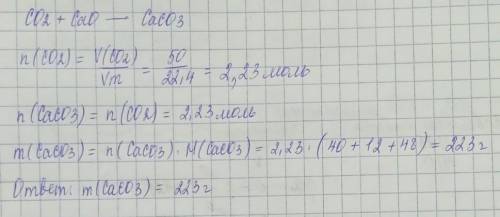 CO2 + CaO — CaCO3
n(CO2) = V(CO2)/Vm = 50/22,4 = 2,23 моль
n(CaCO3) = n(CO2) = 2,23 моль
m(CaCO3) = n(CaCO3) · M(CaCO3) = 2,23 · (40 + 12 + 48) = 223 г
Ответ: m(CaCO3) = 223 г